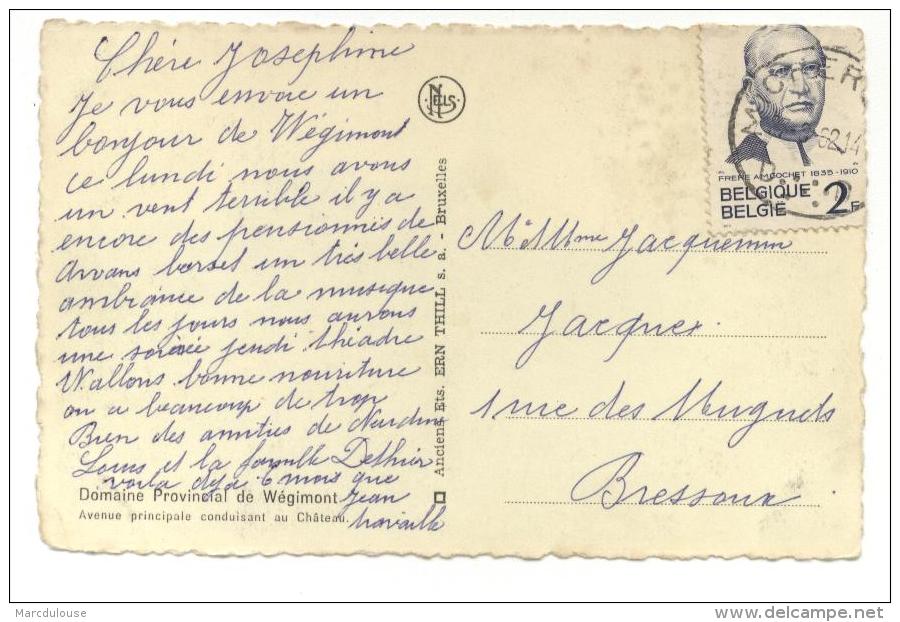 Chére Josephine
Je vous envoie un
bonjour de Wégimont
ce lundi nous avons
un vent terrible il y a
encore des pensionnés de
Awans borset un très belle
ambiance de la musique
tous les jours nous aurons
une soirée jeudi théadre
Wallons bonne nouriture
on a beaucoup de trop
Bien des amities de
Louis et la famille Dethier
voila deja 6 mois que
Jean
travaille
Domaine Provincial de Wégimont
Avenue principale conduisant au Château.
NELS
Anciens Ets. ERN THILL s. a. - Bruxelles
62 14
FRERE AM.GOCHET 1835-1910
BELGIQUE
BELGIË
2F
Mr Mme Jacquemin
Jacques
1 rue des Muguets
Bressoux
Marcdulouse
www.delcampe.net